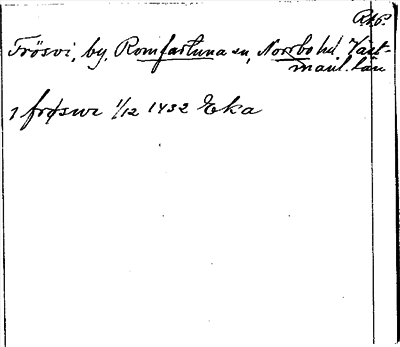 Frösvi, by, Romfartuna sn, Norrbo hd. Väst-
manl. län
j frøswi 1/12 1432 Eka